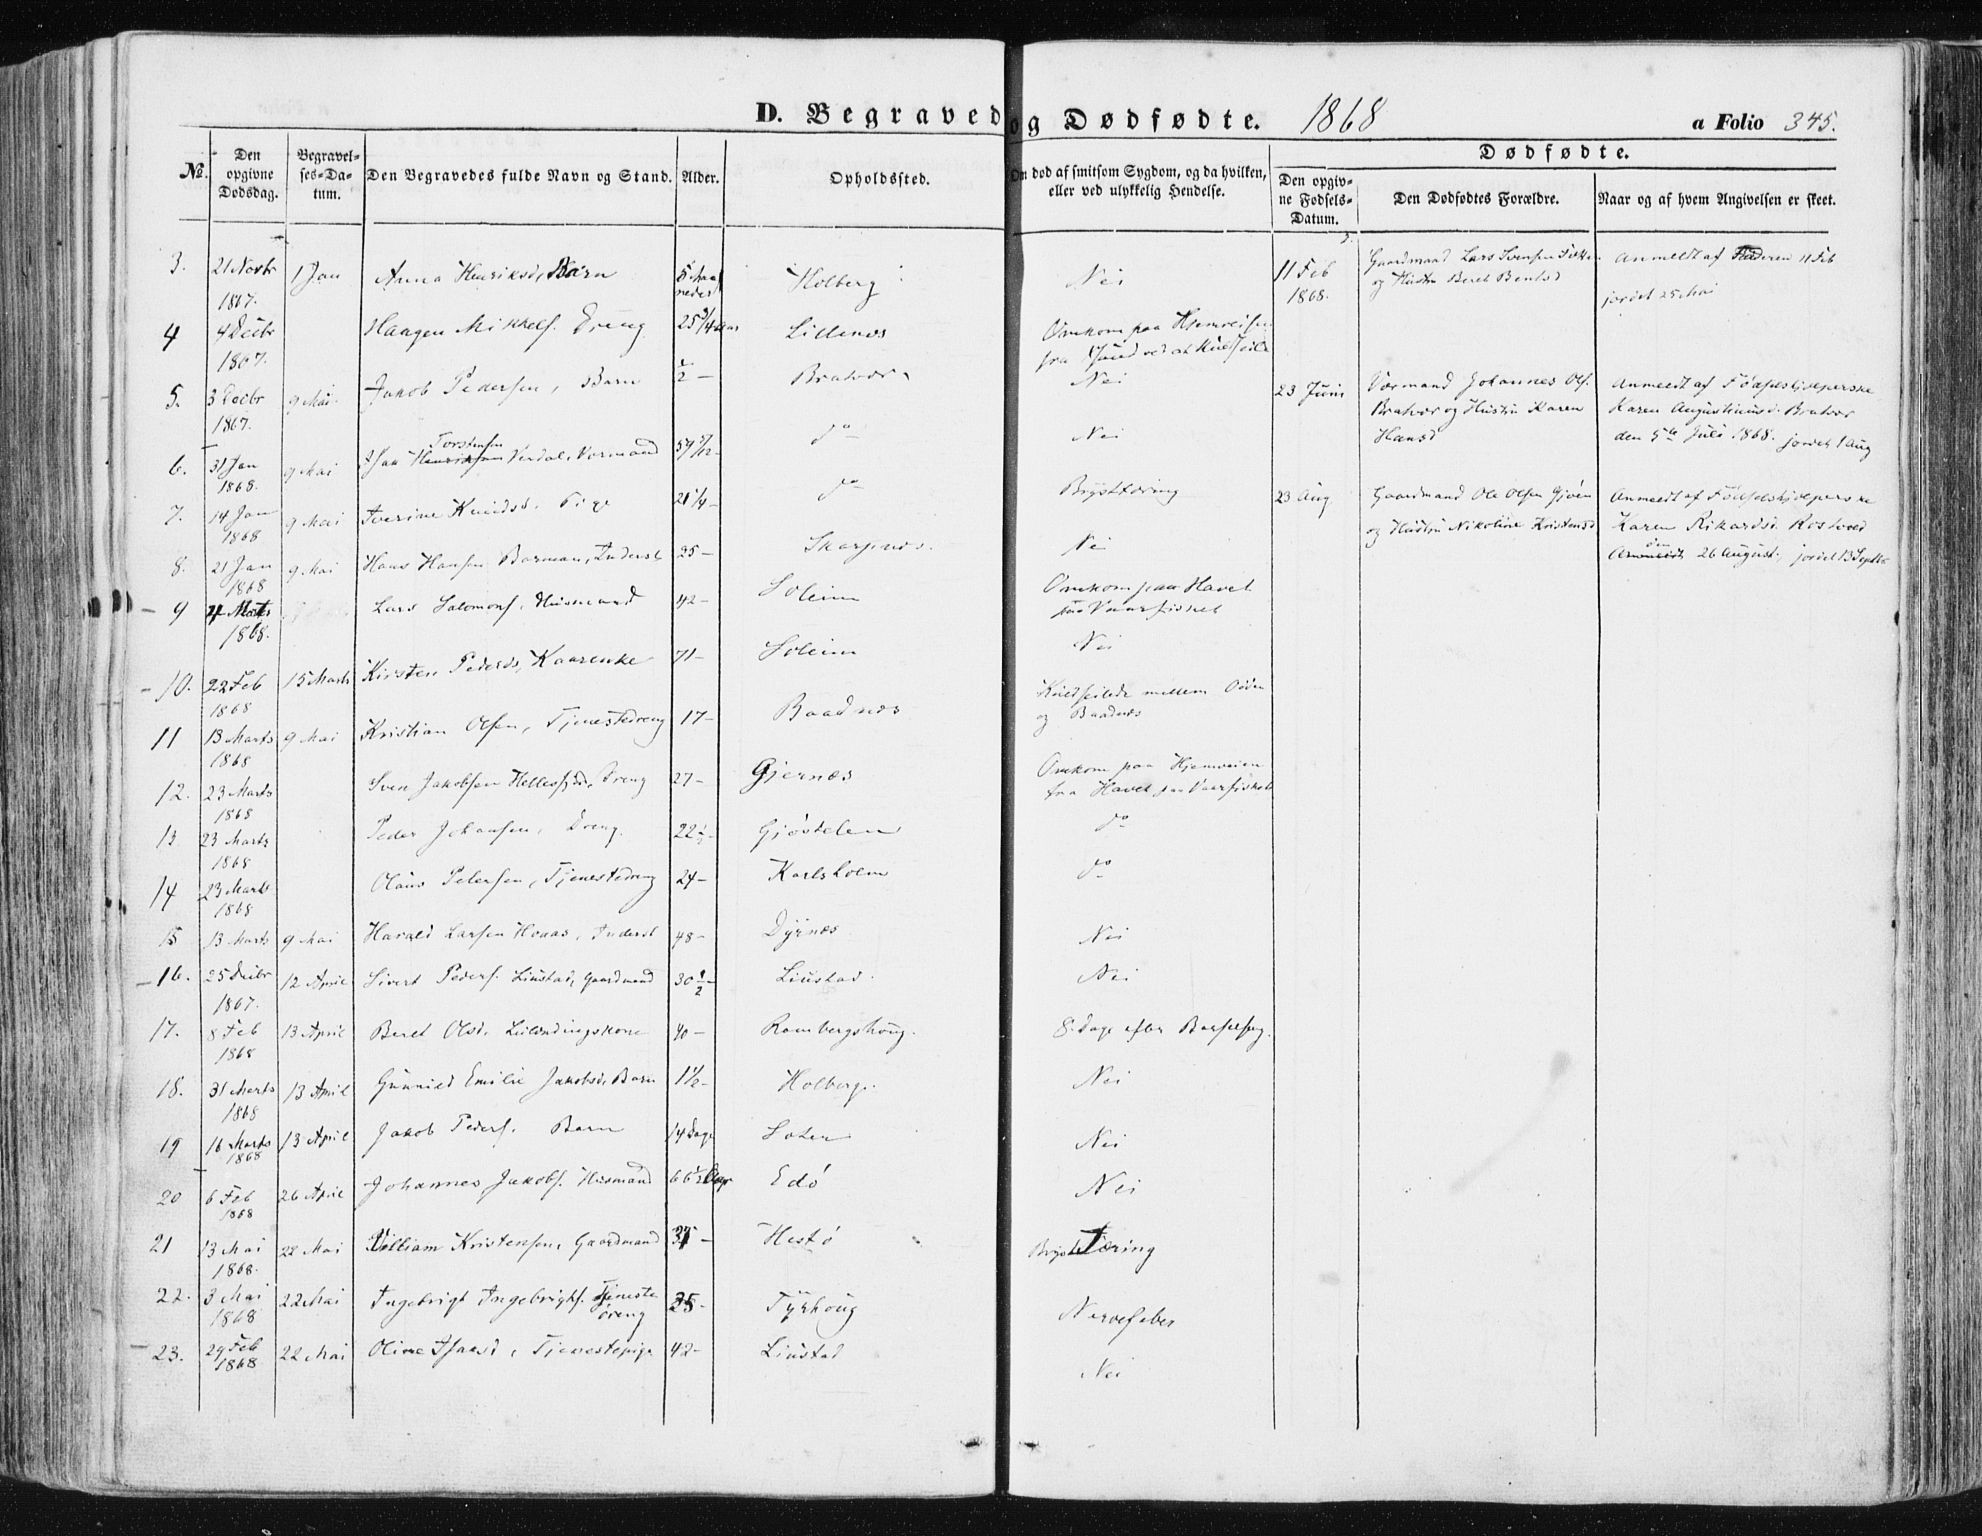 D. Begravede og Dødfødte. 1868 a Folio 345.
No. Den opgivne Dødsdag. Begravelses-Datum. Den Begravedes fulde Navn og Stand. Alder. Opholdssted. Om død af smitsom Sygdom, og da hvilken, eller ved ulykkelig Hendelse.
Dødfødte.
Den opgivne Fødsels-Datum. Den Dødfødtes Forældre. Naar og af hvem Angivelsen er skeet.
3. 21 Novbr 1867. 1 Jan Anna Henriksd, Barn 5 Maaneder Holberg Nei
4 4 Decbr 1867. Haagen Mikkels. Dreng 25 3/4 Aar Lillenes Omkom paa Hjemreisen fra Sund ved at Kuldseile
5. 3 Decbr 1867. 9 Mai Jakob Pedersen, Barn 1/2 — Bratvær Nei
6. 31 Jan 1868. 9 Mai Isak Torstensen Verdal, Vormand do Nei
7. 14 Jan 1868 9 Mai Iverine Knudsd. Pige 21 1/4 — do Brysttæring
8. 21 Jan 1868 9 Mai Hans Hansen Borman, Inderst 25 — Skarpnes. Nei
9 4 Marts 1868. Lars Salomons. Husmand 42 — Soleim Omkom paa Havet paa Vaarfisket
10. 22 Feb 1868 15 Marts Kirsten Pedersd, Kaarenke 71 — Soleim Nei
11 13 Marts 1868 9 Mai Kristian Olsen, Tjenestedreng 17 — Baadnes Kuldseilede mellem Odden og Baadnes
12. 23 Marts 1868 Sven Jakobsen Hellesfjd, Dreng 27 — Gjernes Omkom paa Hjemveien fra Havet paa Vaarfisket
13 23 Marts 1868 Peder Johansen, Dreng. 22 1/2 — Gjøstelen do
14 23 Marts 1868 Olaus Petersen, Tjenestedreng 24 — Karlsholm do
15 13 Marts 9 Mai Harald Larsen Hoaas, Inderst 48 — Dyrnes Nei
16. 25 Decbr 1867. 12 April Sivert Peders. Liustad, Gaardmand 30 1/2 — Liustad. Nei
17. 8 Feb 1868 13 April Beret Olsd. 40 — Rambergshoug. 8 Dage efter Barselseng.
18. 31 Marts 1868 13 April Gunnild Emilie Jakobsd, Barn 1 1/2 — Holberg. Nei
19 16 Marts 1868 13 April Jakob Peders. Barn 14 Dage Nei
20 6 Feb 1868 26 April Johannes Jakobs. Husmand 66 1/2 Aar Edø Nei
21 13 Mai 1868. 22 Mai William Kristensen, Gaardmand Hestø Brysttæring
22. 3 Mai 1868 22 Mai Ingebrigt Ingebrigts. Tjenestedreng 25 — Tyrhoug Nervefeber
23. 29 Feb 1868 22 Mai Oline Isaksd, Tjenestepige 42 — Liustad Nei
11 Feb 1868. Gaardmand Lars Svensen og Hustru Beret Bentsd Anmeldt af Faderen 11 Feb jordet 25 Mai
23 Juni Vormand Johannes Ols. Bratvær og Hustru Karen Hansd Anmeldt af Fødselshjelperske Karen Augustinusd. Bratvær den 5te Juli 1868. jordet 1 Aug
23 Aug Gaardmand Ole Olsen Gjøen og Hustru Nikoline Kristensd Anmeldt af Fødselshjelperske Karen Rikardsd. Rostvod den 26 August. jordet 13 Septbr